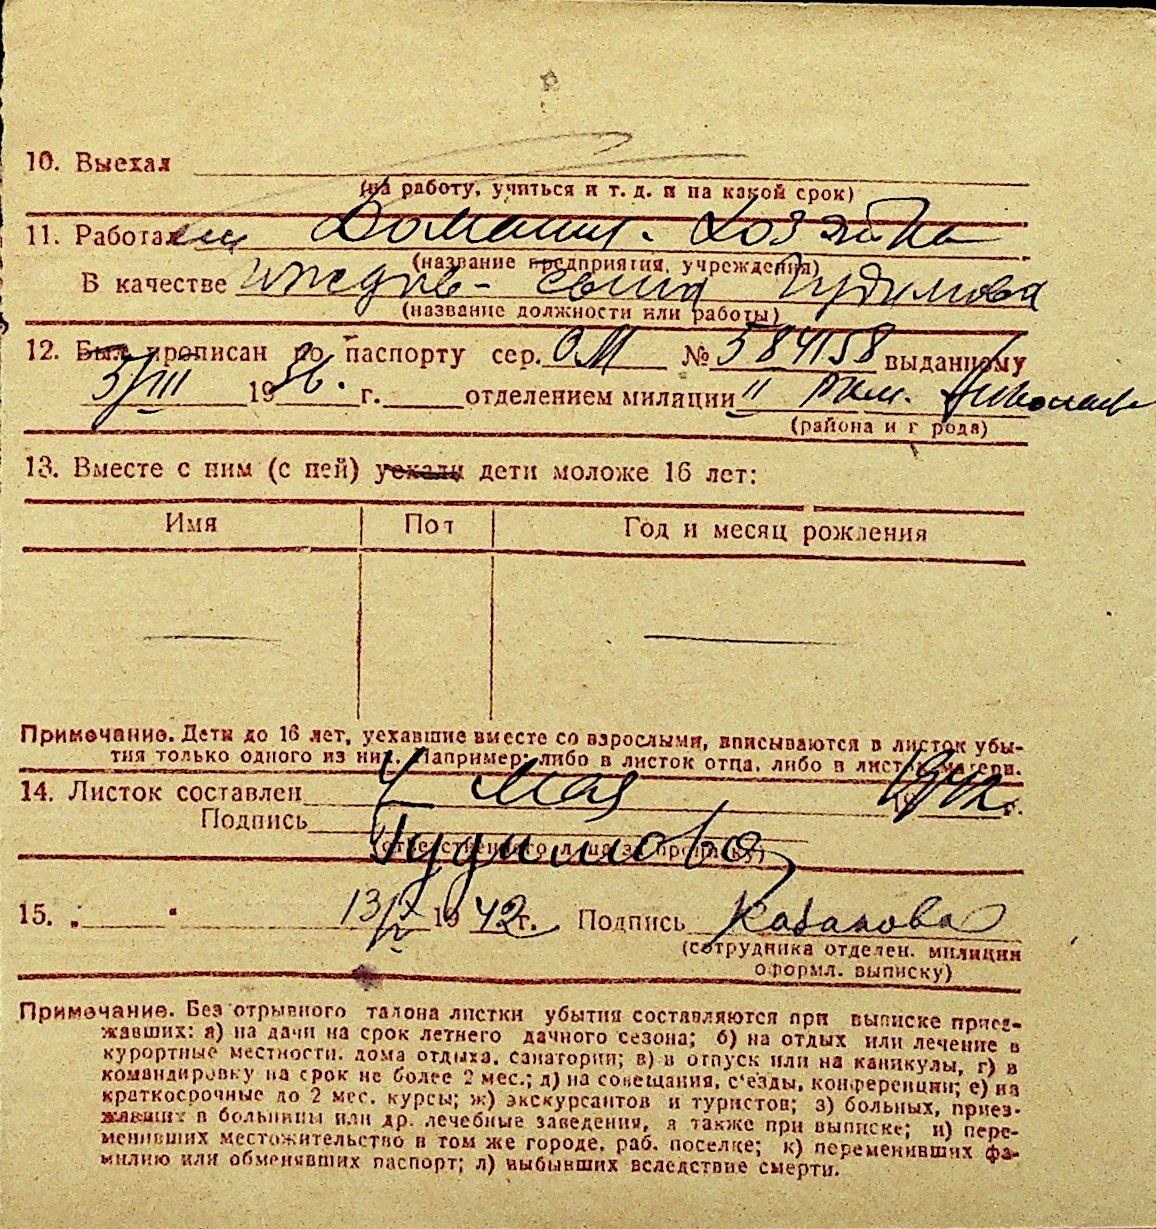 10. Выехал
(на работу, учиться и т. д. и на какой срок)
11. Работает Домашн. Хозяйка
(название предприятия, учреждения)
В качестве иждив- сына Гудимова
(название должности или работы)
12. Был прописан по паспорту сер. ОМ № 584158 выданному
5/III 1936. г. отделением милиции II
(района и г рода)
13. Вместе с ним (с ней) уехали дети моложе 16 лет:
Имя Пол Год и месяц рождения
Примечание. Дети до 16 лет, уехавшие вместе со взрослыми, вписываются в листок убы-
тия только одного из них. Например: либо в листок отца, либо в листок матери.
14. Листок составлен 4 Мая 1942 г.
Подпись Гудимова
(ответственного лица за прописку)
15. „ " 13/V 1942 г. Подпись Казакова
(сотрудника отделен. милиции
оформл. выписку)
Примечание. Без отрывного талона листки убытия составляются при выписке приез-
жавших: а) на дачи на срок летнего дачного сезона; б) на отдых или лечение в
курортные местности, дома отдыха, санатории; в) в отпуск или на каникулы, г) в
командировку на срок не более 2 мес.; д) на совещания, с'езды, конференции; е) на
краткосрочные до 2 мес. курсы; ж) экскурсантов и туристов; з) больных, приез-
жавших в больницы или др. лечебные заведения, а также при выписке; и) пере-
менивших местожительство в том же городе, раб. поселке; к) переменивших фа-
милию или обменявших паспорт; л) выбывших вследствие смерти.